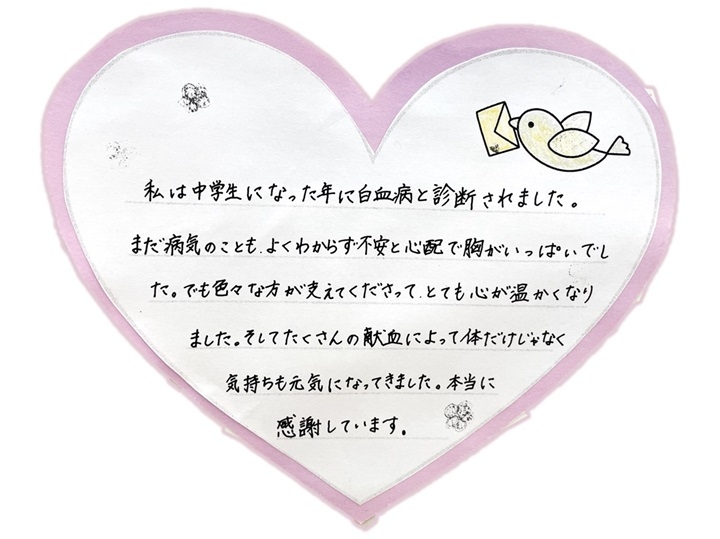 私は中学生になった年に白血病と診断されました。
まだ病気のことも、よくわからず不安と心配で胸がいっぱいでし
た。でも色々な方が支えてくださって、とても心が温かくなり
ました。そしてたくさんの献血によって体だけじゃなく
気持ちも元気になってきました。本当に
感謝しています。